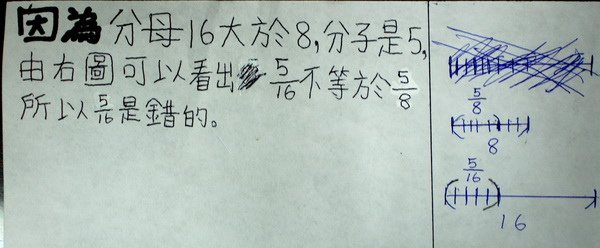 因為分母16大於8,分子是5,
由右圖可以看出 5/16不等於5/8
所以5/16是錯的。
5/8
8
5/16
16